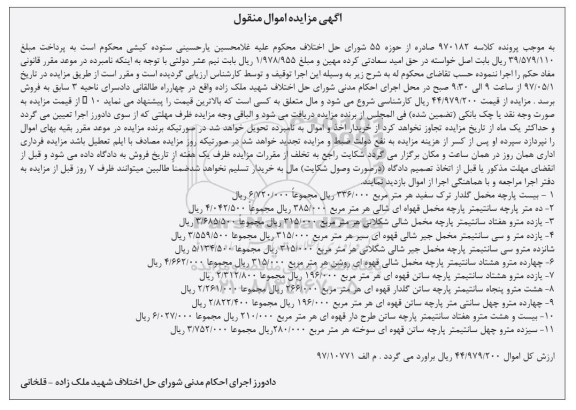 آگهی مزایده اموال منقول
به موجب پرونده کلاسه ۹۷۰۱۸۲ صادره از حوزه ۵۵ شورای حل اختلاف محکوم علیه غلامحسین پارحسینی ستوده کیشی محکوم است به پرداخت مبلغ
۳۹/۵۷۹/۱۱۰ ریال بابت اصل خواسته در حق امید سعادتی کرده مهین و مبلغ ۱/۹۷۸/۹۵۵ ریال بابت نیم عشر دولتی با توجه به اینکه نامبرده در موعد مقرر قانونی
مفاد حکم را اجرا ننموده حسب تقاضای محکوم له به شرح زیر به وسیله این اجرا توقیف و توسط کارشناس ارزیابی گردیده است و مقرر است از طریق مزایده در تاریخ
۹۷/۰۵/۱ از ساعت ۹ الی ۹:۳۰ صبح در محل اجرای احکام مدنی شورای حل اختلاف شهید ملک زاده واقع در چهارراه طالقانی دادسرای ناحیه ۳ سابق به فروش
برسد . مزایده از قیمت ۴۴/۹۷۹/۲۰۰ ریال کارشناسی شروع می شود و مال متعلق به کسی است که بالاترین قیمت را پیشنهاد می نماید ۱۰ از قیمت مزایده به
صورت وجه نقد یا چک بانکی (تضمین شده) فی المجلس از برنده مزایده دریافت می شود و الباقی وجه مزایده ظرف مهلتی که از سوی دادورز اجرا تعیین می گردد
و حداکثر یک ماه از تاریخ مزایده تجاوز نخواهد کرد از خریدار اخذ و اموال به نامبرده تحویل خواهد شد در صورتیکه برنده مزایده در موعد مقرر بقیه بهای اموال
را نپردازد سپرده او پس از کسر از هزینه مزایده به نفع دولت ضبط و مزایده تجدید خواهد شد در صورتیکه روز مزایده مصادف با ایام تعطیل باشد مزایده فردای
اداری همان روز در همان ساعت و مکان برگزار می گردد شکایت راجع به تخلف از مقررات مزایده ظرف یک هفته از تاریخ فروش به دادگاه داده می شود و قبل از
انقضای مهلت مذکور یا قبل از اتخاذ تصمیم دادگاه (درصورت وصول شکایت) مال به خریدار تسلیم نخواهد شدضمنا طالبین میتوانند ظرف ۷ روز قبل از مزایده به
دفتر اجرا مراجعه و با هماهنگی اجرا از اموال بازدید نمایند.
۱- بیست پارچه مخمل گلدار ترک سفید هر متر مربع ۳۳۶/۰۰۰ ریال مجموعاً ۶/۷۲۰/۰۰۰ ریال
۲- ده متر پارچه سانتیمتر پارچه مخمل قهواه ای شالی هر متر مربع ۳۸۵/۰۰۰ ریال مجموعا ۴/۰۴۲/۵۰۰ ریال
۳- یازده مترو هفتاد سانتیمتر پارچه مخمل شالی شکلاتی هر متر مربع ۳۱۵/۰۰۰ ریال مجموعا ۳/۶۸۵/۵۰۰ ریال
۴- یازده مترو و سی سانتیمتر پارچه مخمل جیر شالی قهواه ای سیر هر متر مربع ۳۱۵/۰۰۰ ریال مجموعا ۳/۵۵۹/۵۰۰ ریال
شانزده مترو سی سانتیمتر پارچه مخمل جیر شالی شکلاتی هر متر مربع ۳۱۵/۰۰۰ ریال مجموعا ۵/۱۳۴/۵۰۰ ریال
۶- چهارده مترو هشتاد سانتیمتر پارچه مخمل شالی قهواه ای روشن هر متر مربع ۳۱۵/۰۰۰ ریال مجموعا ۴/۶۶۲/۰۰۰ ریال
۷- یازده مترو هشتاد سانتیمتر پارچه ساتن قهوه ای هر متر مربع ۱۹۶/۰۰۰ ریال مجموعا ۲/۳۱۲/۸۰۰ ریال
۸- هشت مترو پنجاه سانتیمتر پارچه ساتن گلدار قهوه ای هر متر مربع ۲۶۶/۰۰۰ ریال مجموعا ۲/۲۶۱/۰۰۰ ریال
۹- چهارده مترو چهل سانتی متر پارچه ساتن قهوه ای هر متر مربع ۱۹۶/۰۰۰ ریال مجموعا ۲/۸۲۲/۴۰۰ ریال
۱۰- بیست و هشت مترو هفتاد سانتیمتر پارچه ساتن طرح دار قهوه ای هر متر مربع ۲۱۰/۰۰۰ ریال مجموعا ۶/۰۲۷/۰۰۰ ریال
۱۱- سیزده مترو چهل سانتیمتر پارچه ساتن قهوه ای سوخته هر متر مربع ۲۸۰/۰۰۰ریال مجموعا ۳/۷۵۲/۰۰۰ ریال
ارزش کل اموال ۴۴/۹۷۹/۲۰۰ ریال براورد می گردد . م الف ۹۷/۱۰۷۷۱
دادورز اجرای احکام مدنی شورای حل اختلاف شهید ملک زاده – قلخانی